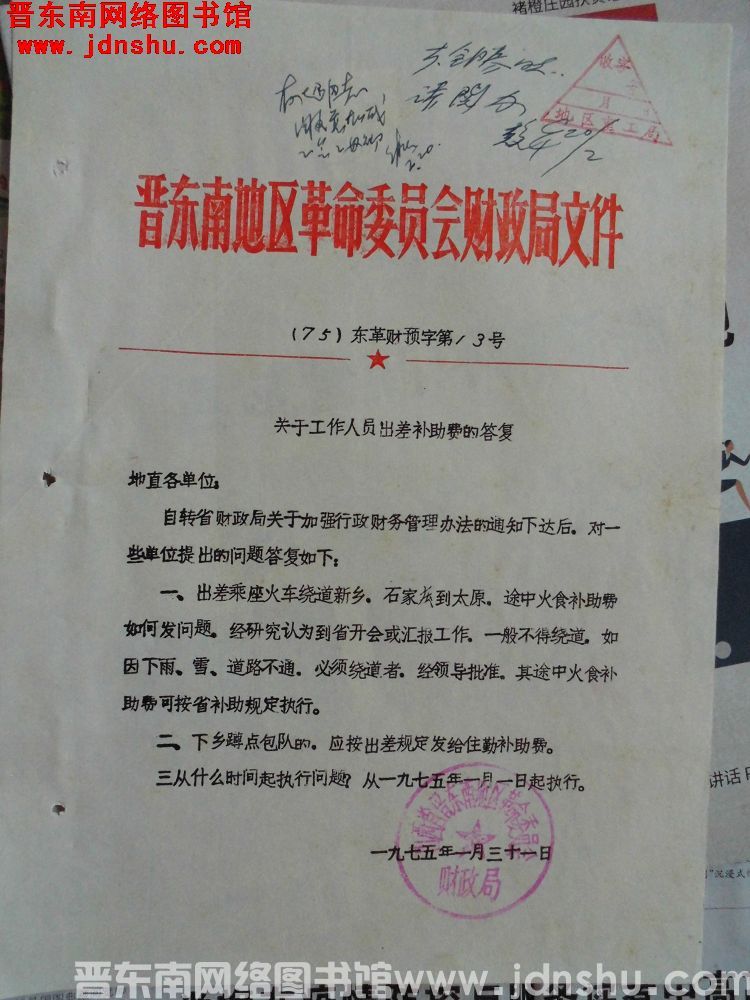 晋东南网络图书馆
www.jdnshu.com
请阅办
20/2
收
月
地区重工局
晋东南地区革命委员会财政局文件
(75)东革财预字第13号
关于工作人员出差补助费的答复
地直各单位:
自转省财政局关于加强行政财务管理办法的通知下达后。对一
些单位提出的问题答复如下:
一、出差乘座火车绕道新乡。石家庄到太原。途中火食补助费
如何发问题。经研究认为到省开会或汇报工作。一般不得绕道。如
因下雨、雪、道路不通。必须绕道者。经领导批准。其途中火食补
助费可按省补助规定执行。
二、下乡蹲点包队的。应按出差规定发给住勤补助费。
三从什么时间起执行问题?从一九七五年一月一日起执行。
山西省晋东南地区革命委员会
财政局
一九七五年一月三十一日
讲话
晋东南网络图书馆 www.jdnshu.com